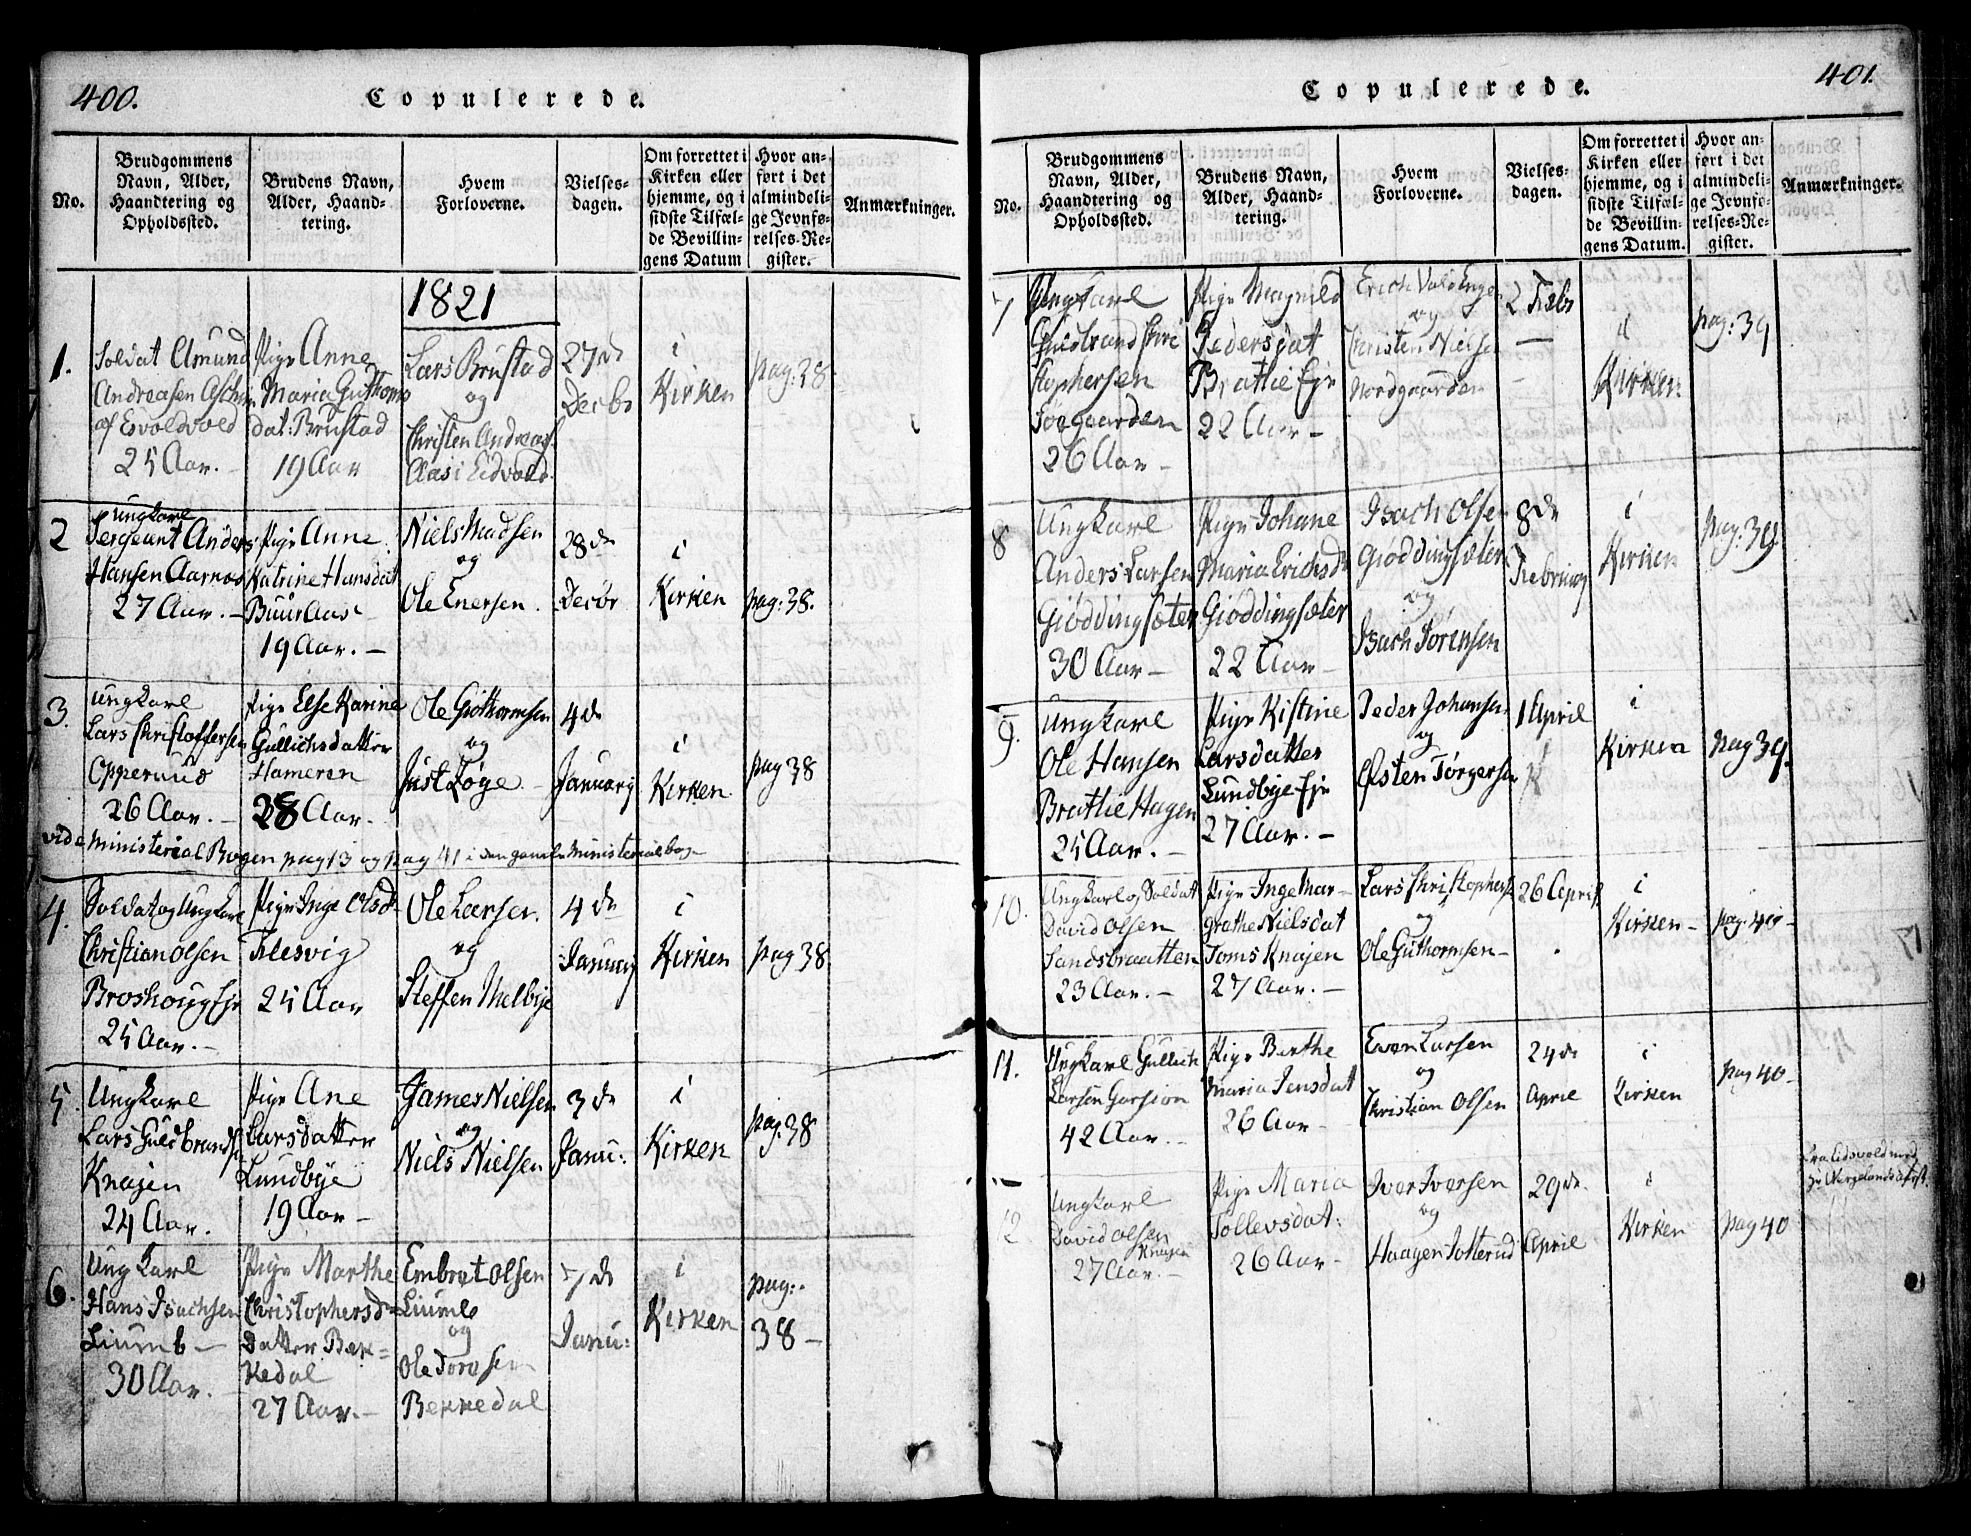 400.
Copulerede.
No.
Brudgommens
Navn, Alder,
Haandtering og
Opholdssted.
Brudens Navn,
Alder, Haand-
tering.
Hvem
Forloverne.
Vielses-
dagen.
Om forrettet i
Kirken eller
hjemme, og i
sidste Tilfæl-
de Bevillin-
gens Datum
Hvor an-
ført i det
almindeli-
ge Jevnfø-
relses-Re-
gister.
Anmærkninger.
1821
1.
Soldat Amund
Andreasen
af Esvoldvold
25 Aar.
Pige Anne
Maria Guthorms
dat: Brustad
19 Aar
Lars Brustad
og
Christen Andreas
Aas i Eidvold
27 de
Decbr
i
Kirken
pag: 38
2
Ungkarl
Sergeant Anders
Hansen Aarnæs
27 Aar. -
Pige Anne
Katrine Hansdat
Buuraas
19 Aar. -
Niels Madsen
og
Ole Enersen.
28 de
Decbr
i
Kirken
pag: 38.
3.
Ungkarl
Lars Christoffersen
Opperund
26 Aar. -
Pige Else Karine
Gullichsdatter
Hameren
28 Aar.
Ole Giøthormsen
og
Just Løge. -
4 de
Januarij
i
Kirken.
pag 38
vide Ministerial Bogen pag 13 og pag 41 i den gamle Ministerialbog
4.
Soldat og Ungkarl
Christian Olsen
Broshoug Eje
25 Aar. -
Pige Inge Olsd
Flesvig
25 Aar
Ole Larsen.
og
Steffen Melbye
4 de
Januarij
i
Kirken
pag 38
5
Ungkarl
Lars Guldbrands
Knajen
24 Aar.
Pige Ane
Larsdatter
Lundbye
19 Aar -
James Nielsen
og
Niels Nielsen
3 de
Janu:
i
Kirken
pag: 38
6.
Ungkarl
Hans Isachsen
Liumb -
30 Aar. -
Pige Marthe
Christophersd
Datter Bek=
kedal
27 Aar. -
Embret Olsen
Liumb
og
Ole
Bekkedal
7 de
Janu:
i
Kirken
pag:
38 -
401.
Copulerede.
No.
Brudgommens
Navn, Alder,
Haandtering og
Opholdssted.
Brudens Navn,
Alder, Haand-
tering.
Hvem
Forloverne.
Vielses-
dagen.
Om forrettet i
Kirken eller
hjemme, og i
sidste Tilfæl-
de Bevillin-
gens Datum.
Hvor an-
ført i det
almindeli-
ge Jevnfø-
relses-Re-
gister.
Anmærkninger.
7
Ungkarl
Guldbrand Chri
stophersen
Søegaarden
26 Aar -
Pige Magnild
Pedersdat
Brathe Eje
22 Aar -
Erich Vold Engen
og
Christen Nielsen
Nordgaarden
2 Febr
i
Kirken.
pag: 39
8
Ungkarl
Anders Larsen
Giøddingsæter
30 Aar -
Pige Johane
Maria Erichsd
Giøddingsæter
22 Aar -
Isach Olsen
Giøddingsæter
og
Isach Jørensen
8 de
Februarij
i
Kirken
pag: 39
9.
Ungkarl
Ole Hansen
Brathe Hagen
25 Aar. -
Pige Kistine
Larsdatter
Lundbye Eje
27 Aar. -
Peder Johansen
og
Østen Tørgersen
1 April
i
Kirken
pag 39.
10.
Ungkarl og Soldat
David Olsen
Sandsbraatten
23 Aar. -
Pige Inge Mar-
grethe Nielsdat
Toms Knajen
27 Aar. -
Lars Christophers
og
Ole Guthormsen -
26 April
i
Kirken -
pag. 40 -
11.
Ungkarl Gullich
Larsen
42 Aar. -
Pige Berthe
Maria Jensdat
26 Aar -
Even Larsen
og
Christian Olsen
24 de
April
i
Kirken
pag 40 -
12
Ungkarl
David Olsen
Knajen
27 Aar. -
Pige Maria
Tollevsdat:
26 Aar -
Iver Iversen
og
Haagen Totterud
29 de
April
i
Kirken
pag 40
Fra Eidsvold med
Hr Wergelands